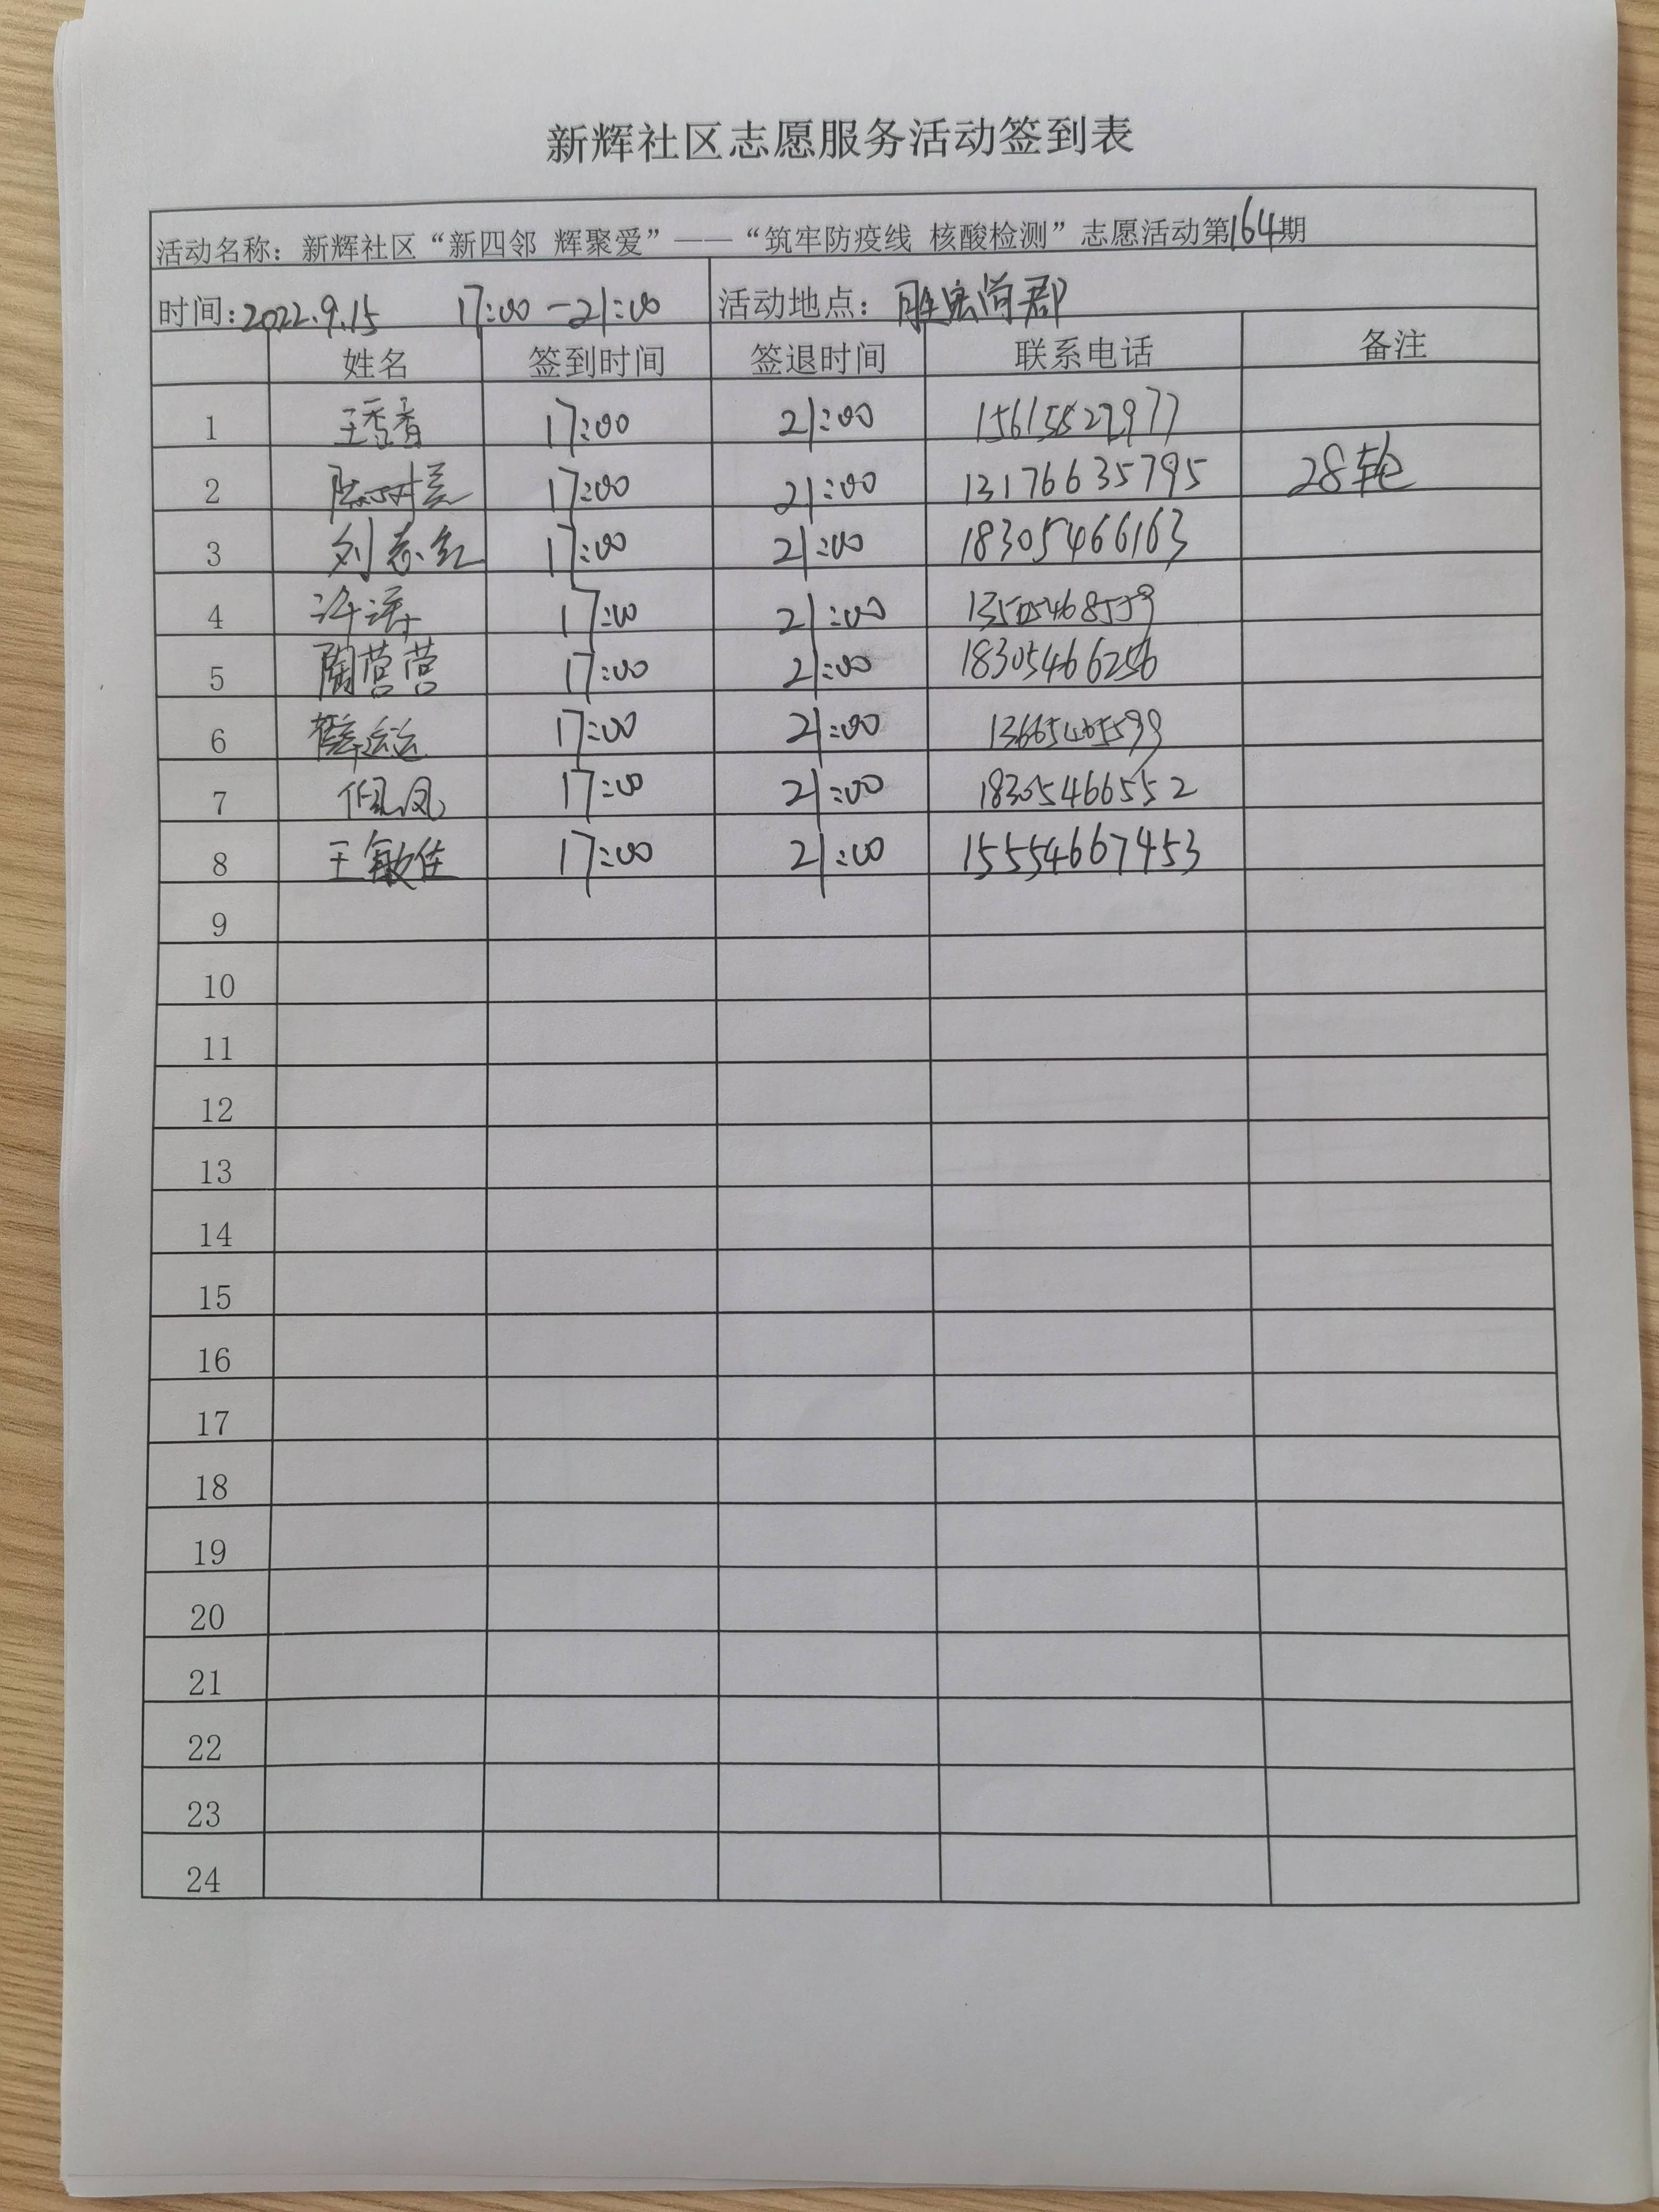 新辉社区志愿服务活动签到表
活动名称：新辉社区“新四邻 辉聚爱”——“筑牢防疫线 核酸检测”志愿活动第164期
时间：2022.9.15 17:00-21:00 活动地点：胜宏尚郡
姓名 签到时间 签退时间 联系电话 备注
1 王香香 17:00 21:00
2 陈树美 17:00 21:00 13176635795 28轮
3 刘志红 17:00 21:00 18305466163
4 许涛 17:00 21:00
5 陶营营 17:00 21:00 18305466256
6 薛运运 17:00 21:00 13665465599
7 17:00 21:00 18305466552
8 王敏佳 17:00 21:00 15554667453
9
10
11
12
13
14
15
16
17
18
19
20
21
22
23
24